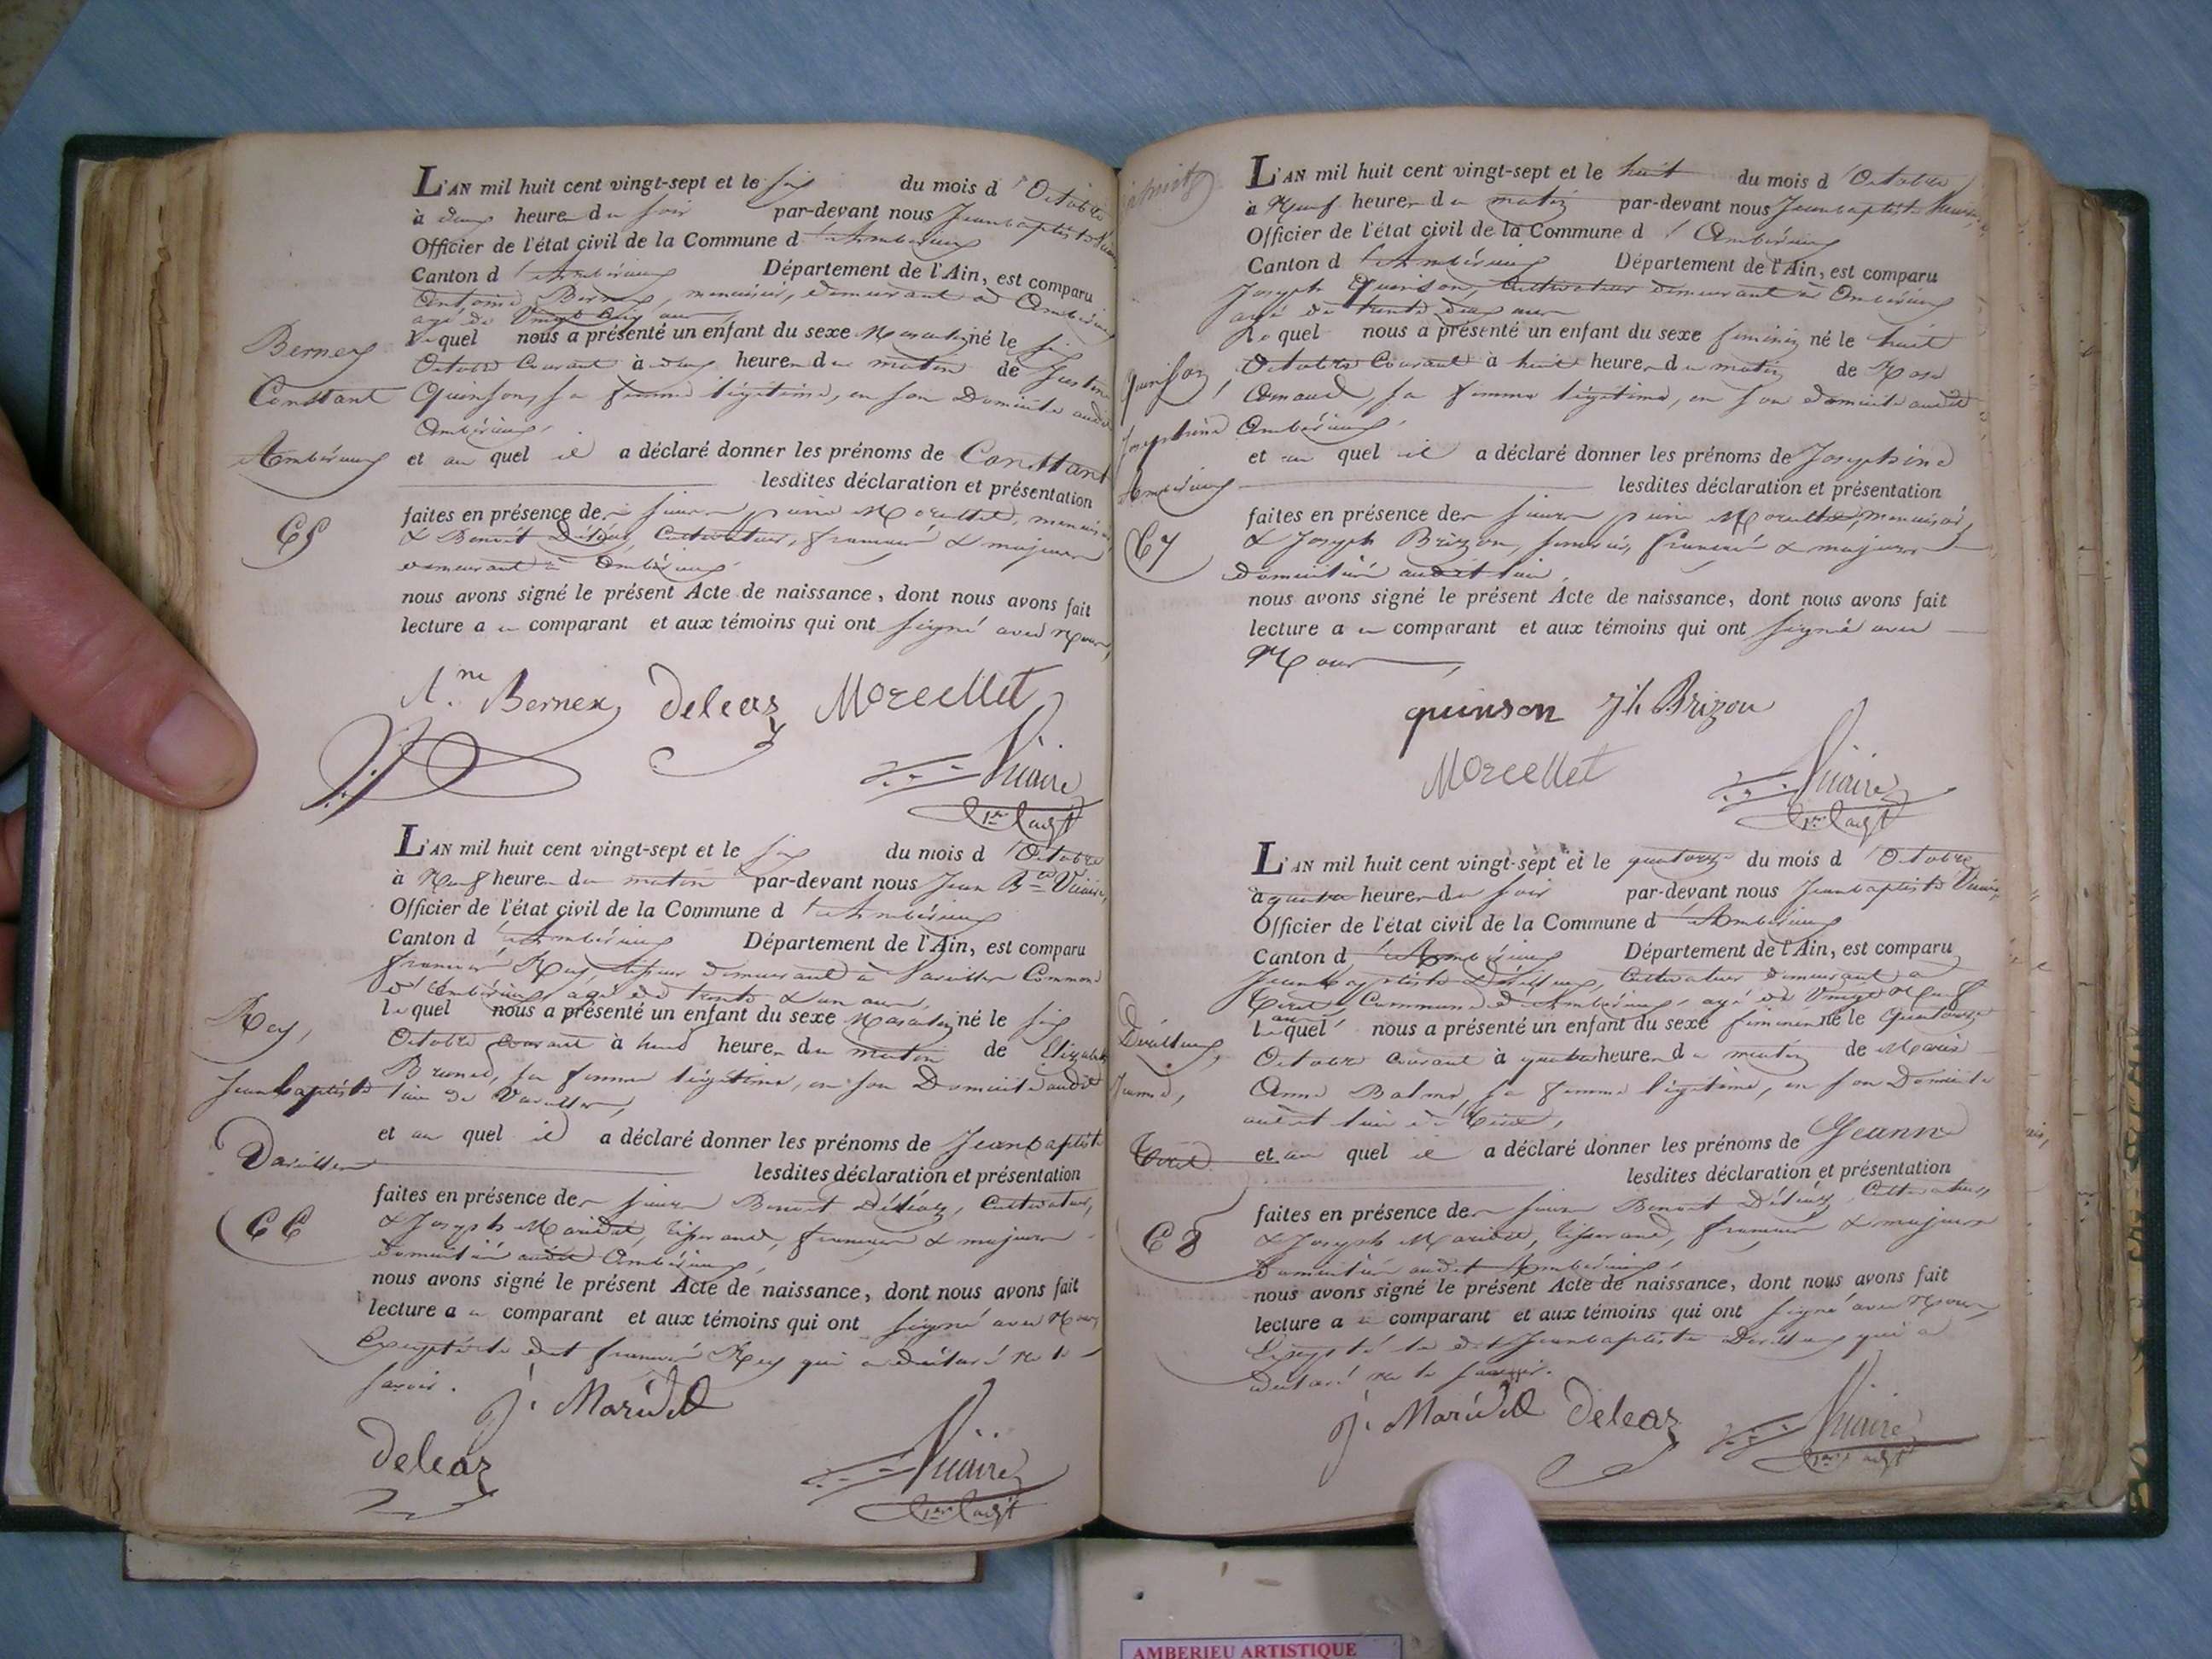 L'AN mil huit cent vingt-sept et le six du mois d'Octobre
à deux heures du soir par-devant nous Jeanbaptiste
Officier de l'état civil de la Commune d'Ambérieux
Canton d'Ambérieux Département de l'Ain, est comparu
Antoine Bernex, menuisier, demeurant à Ambérieux
agé de Vingt cinq ans
Lequel nous a présenté un enfant du sexe Masculin né le six
Bernex
Octobre Courant à deux heures du matin de Justine
Constant
Quinson, sa femme légitime, en son Domicile audit
Ambérieux,
Ambérieux
et au quel il a déclaré donner les prénoms de Constant
lesdites déclaration et présentation
faites en présence des sieurs pierre Morellet, menuisier
65
& Benoit Déléaz, Cultivateur, francais & majeurs
demeurant à Ambérieux
nous avons signé le présent Acte de naissance, dont nous avons fait
lecture au comparant et aux témoins qui ont signé avec Nous,
Ane Bernex Deleaz Morellet
Vicaire
1er Adjt
L'AN mil huit cent vingt-sept et le six du mois d'Octobre
à Neuf heures du matin par-devant nous Jean Bte Vicaire,
Officier de l'état civil de la Commune d'Ambérieux
Canton d'Ambérieux Département de l'Ain, est comparu
francois Rey, demeurant à Vareilles Commune
d'Ambérieux agé de trente & un ans,
lequel nous a présenté un enfant du sexe Masculin né le six
Rey,
Octobre Courant à heures du matin de Elizabeth
Brunet, sa femme légitime, en son Domicile audit
Jeanbaptiste
lieu de Vareilles,
et au quel il a déclaré donner les prénoms de Jeanbaptiste
Vareilles
lesdites déclaration et présentation
faites en présence des sieurs Benoit Déléaz, Cultivateur,
66
& Joseph Maridet, tisserand, francais & majeurs
domiciliés audit Ambérieux,
nous avons signé le présent Acte de naissance, dont nous avons fait
lecture au comparant et aux témoins qui ont signé avec Nous
Excepté le dit francois Rey qui a déclaré ne le
savoir.
j. Maridet
Deleaz
Vicaire
1er Adjt
L'AN mil huit cent vingt-sept et le huit du mois d'Octobre
à Neuf heures du matin par-devant nous Jeanbaptiste Vicaire,
Officier de l'état civil de la Commune d'Ambérieux
Canton d'Ambérieux Département de l'Ain, est comparu
Joseph Quinson, Cultivateur demeurant à Ambérieux
agé de trente deux ans
Lequel nous a présenté un enfant du sexe féminin né le huit
Quinson,
Octobre Courant à huit heures du matin de Rose
sa femme légitime, en son domicile audit
Josephine
Ambérieux,
et au quel il a déclaré donner les prénoms de Josephine
Ambérieux
lesdites déclaration et présentation
faites en présence des sieurs pierre Morellet, menuisier,
67
& Joseph Brizon, francais & majeurs
domiciliés audit lieu,
nous avons signé le présent Acte de naissance, dont nous avons fait
lecture au comparant et aux témoins qui ont signé avec
Nous
quinson Jh Brizon
Morellet
Vicaire
1er Adjt
L'AN mil huit cent vingt-sept et le quatorze du mois d'Octobre
à quatre heures du soir par-devant nous Jeanbaptiste Vicaire,
Officier de l'état civil de la Commune d'Ambérieux
Canton d'Ambérieux Département de l'Ain, est comparu
Jeanbaptiste Cultivateur demeurant à
Tiret, Commune d'Ambérieux, agé de Vingt Neuf
ans
lequel nous a présenté un enfant du sexe féminin né le Quatorze
Octobre Courant à quatre heures du matin de Marie
Jeanne,
Anne Balme, sa femme légitime, en son Domicile
audit lieu de Tiret,
Tiret
et au quel il a déclaré donner les prénoms de Jeanne
lesdites déclaration et présentation
faites en présence des sieurs Benoit Déléaz, Cultivateur,
68
& Joseph Maridet, tisserand, francais & majeurs
Domiciliés audit Ambérieux,
nous avons signé le présent Acte de naissance, dont nous avons fait
lecture au comparant et aux témoins qui ont signé avec Nous,
Excepté le dit Jeanbaptiste qui a
déclaré ne le savoir.
j. Maridet Deleaz
Vicaire
1er Adjt
AMBERIEU ARTISTIQUE